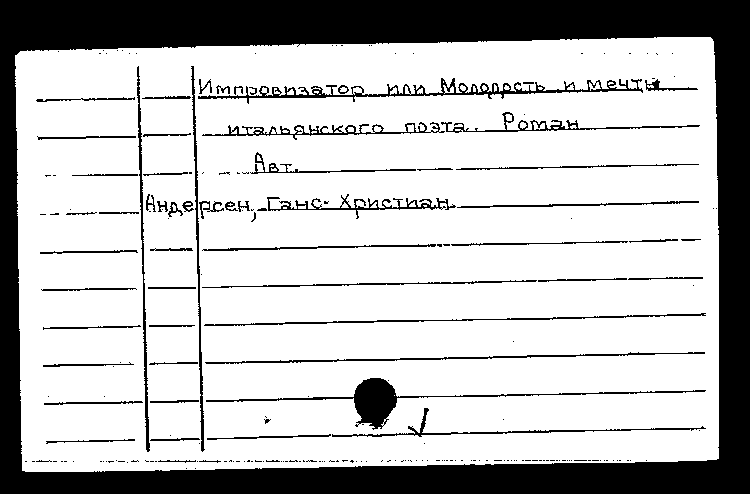 Импровизатор или Молодость и мечты
итальянского поэта. Роман
Авт.
Андерсен, Ганс-Христиан.